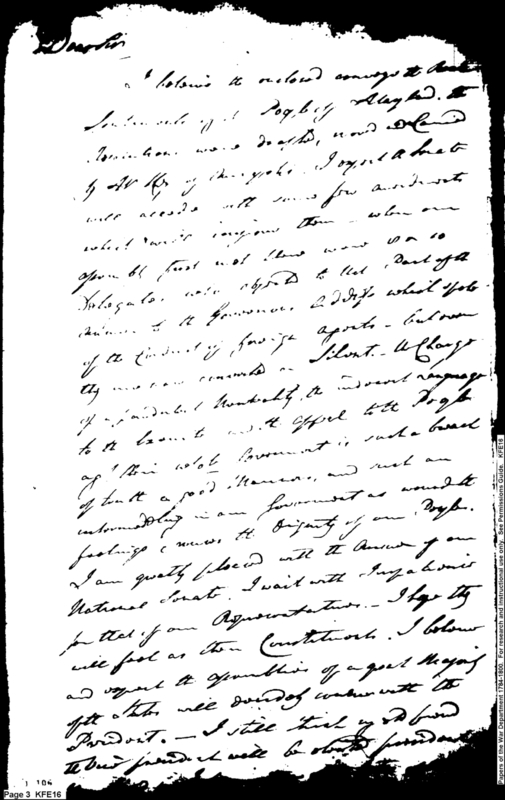 Dear Sir
I believe the enclosed conveys the Real
Sentiments of the People of Maryland. the
Resolutions were drafted, moved & Carried
by Mr Key of Annapolis. I expect the Senate
will accede with some few amendments
which will improve them – when our
assembly first met there were 8 or 10
Delegates who objected to that Part of the
answer to the Governors Address which spoke
of the Conduct of foreign agents – but even
they are now converted or Silent. – A Charge
of a Neutrality, the indecent language
to the and the appeal to the People
agt. their own Government is such a breach
of truth & good Manners, and such an
intermeddling in our Government as wounds the
feelings & the Dignity of our People.
I am greatly pleased with the Answer of our
National Senate. I wait with Impatience
for that of our Representatives. – I hope they
will feel as their Constituents. I believe
and expect the assemblies of a great Majority
of the States will decidedly concur with the
President. – I still think my old friend
the Vice president will be elected president
Page 3 KFE16
Papers of the War Department 1784-1800. For research and instructional use only. See Permissions Guide. KFE16